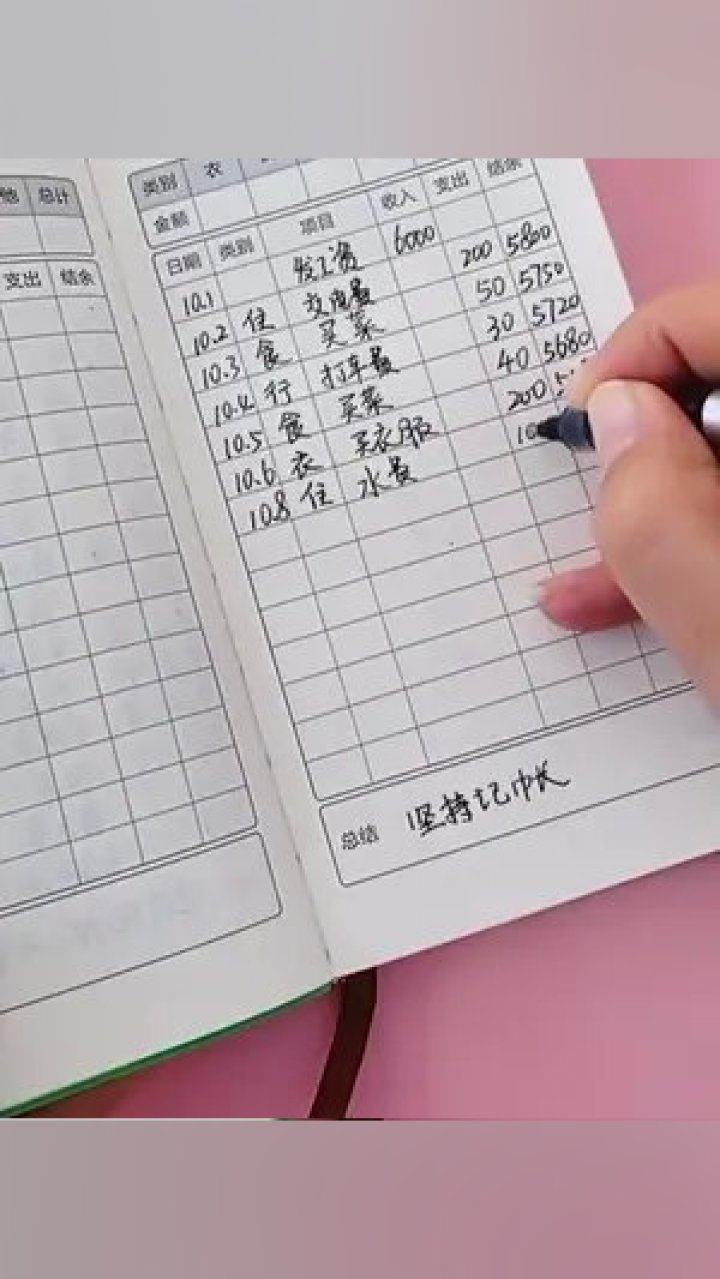 他 总计
支出 结余
类别 衣
金额
日期 类别 项目 收入 支出 结余
10.1 发工资 6000
10.2 住 交电费 200 5800
10.3 食 买菜 50 5750
10.4 行 打车费 30 5720
10.5 食 买菜 40 5680
10.6 衣 买衣服 200
10.8 住 水费
总结 坚持记巾长